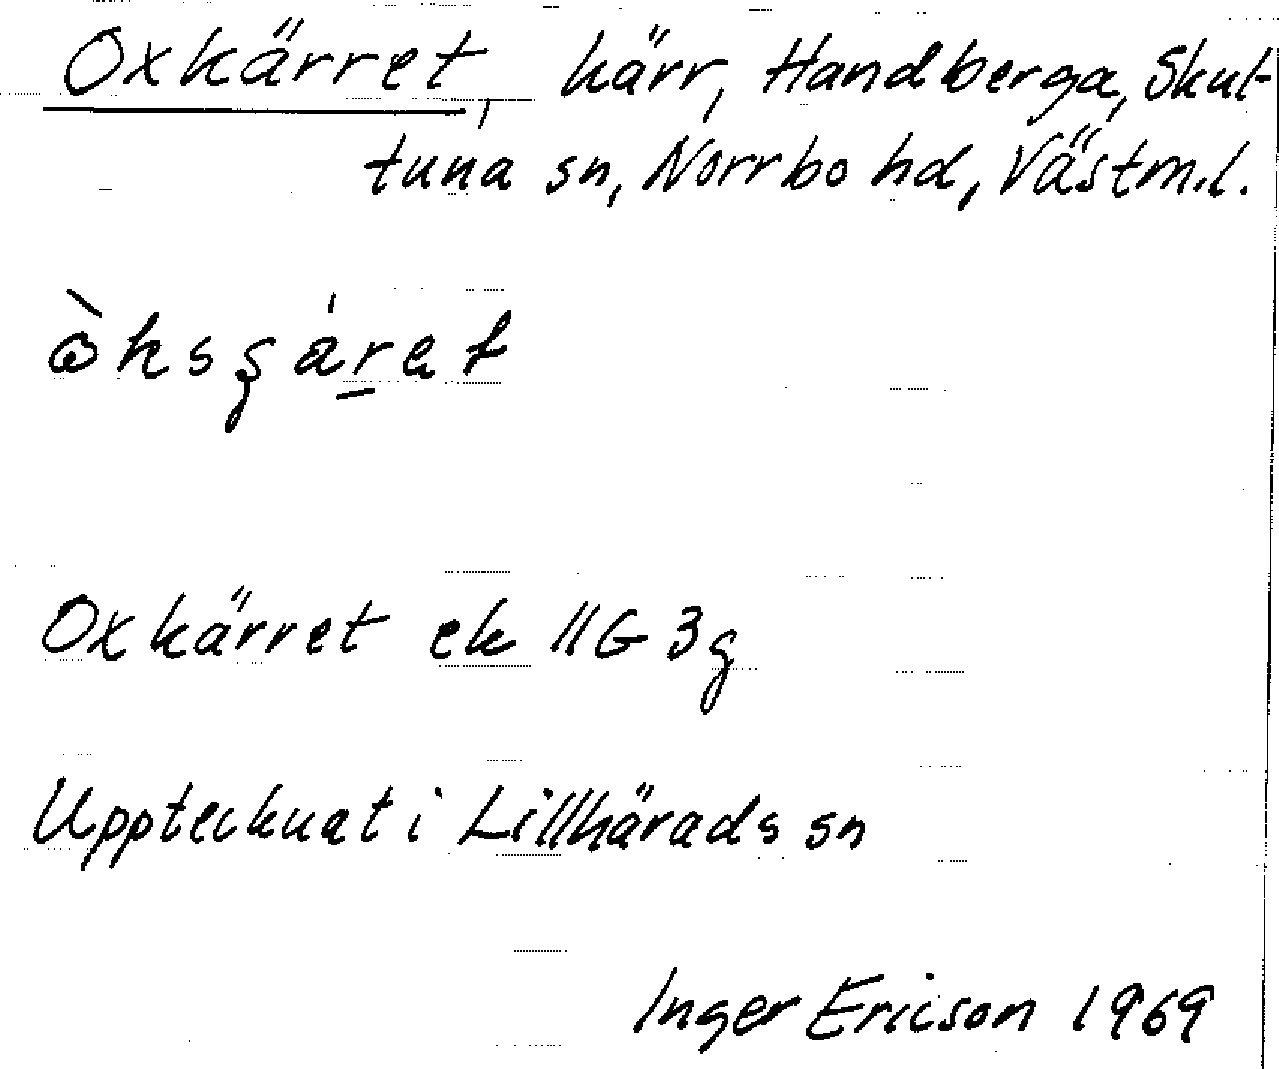 Oxkärret, kärr, Handberga, Skul-
tuna sn, Norrbo hd, Västm.l.
Oxkärret ek 11G 3g
Upptecknat i Lillhärads sn
Inger Ericson 1969